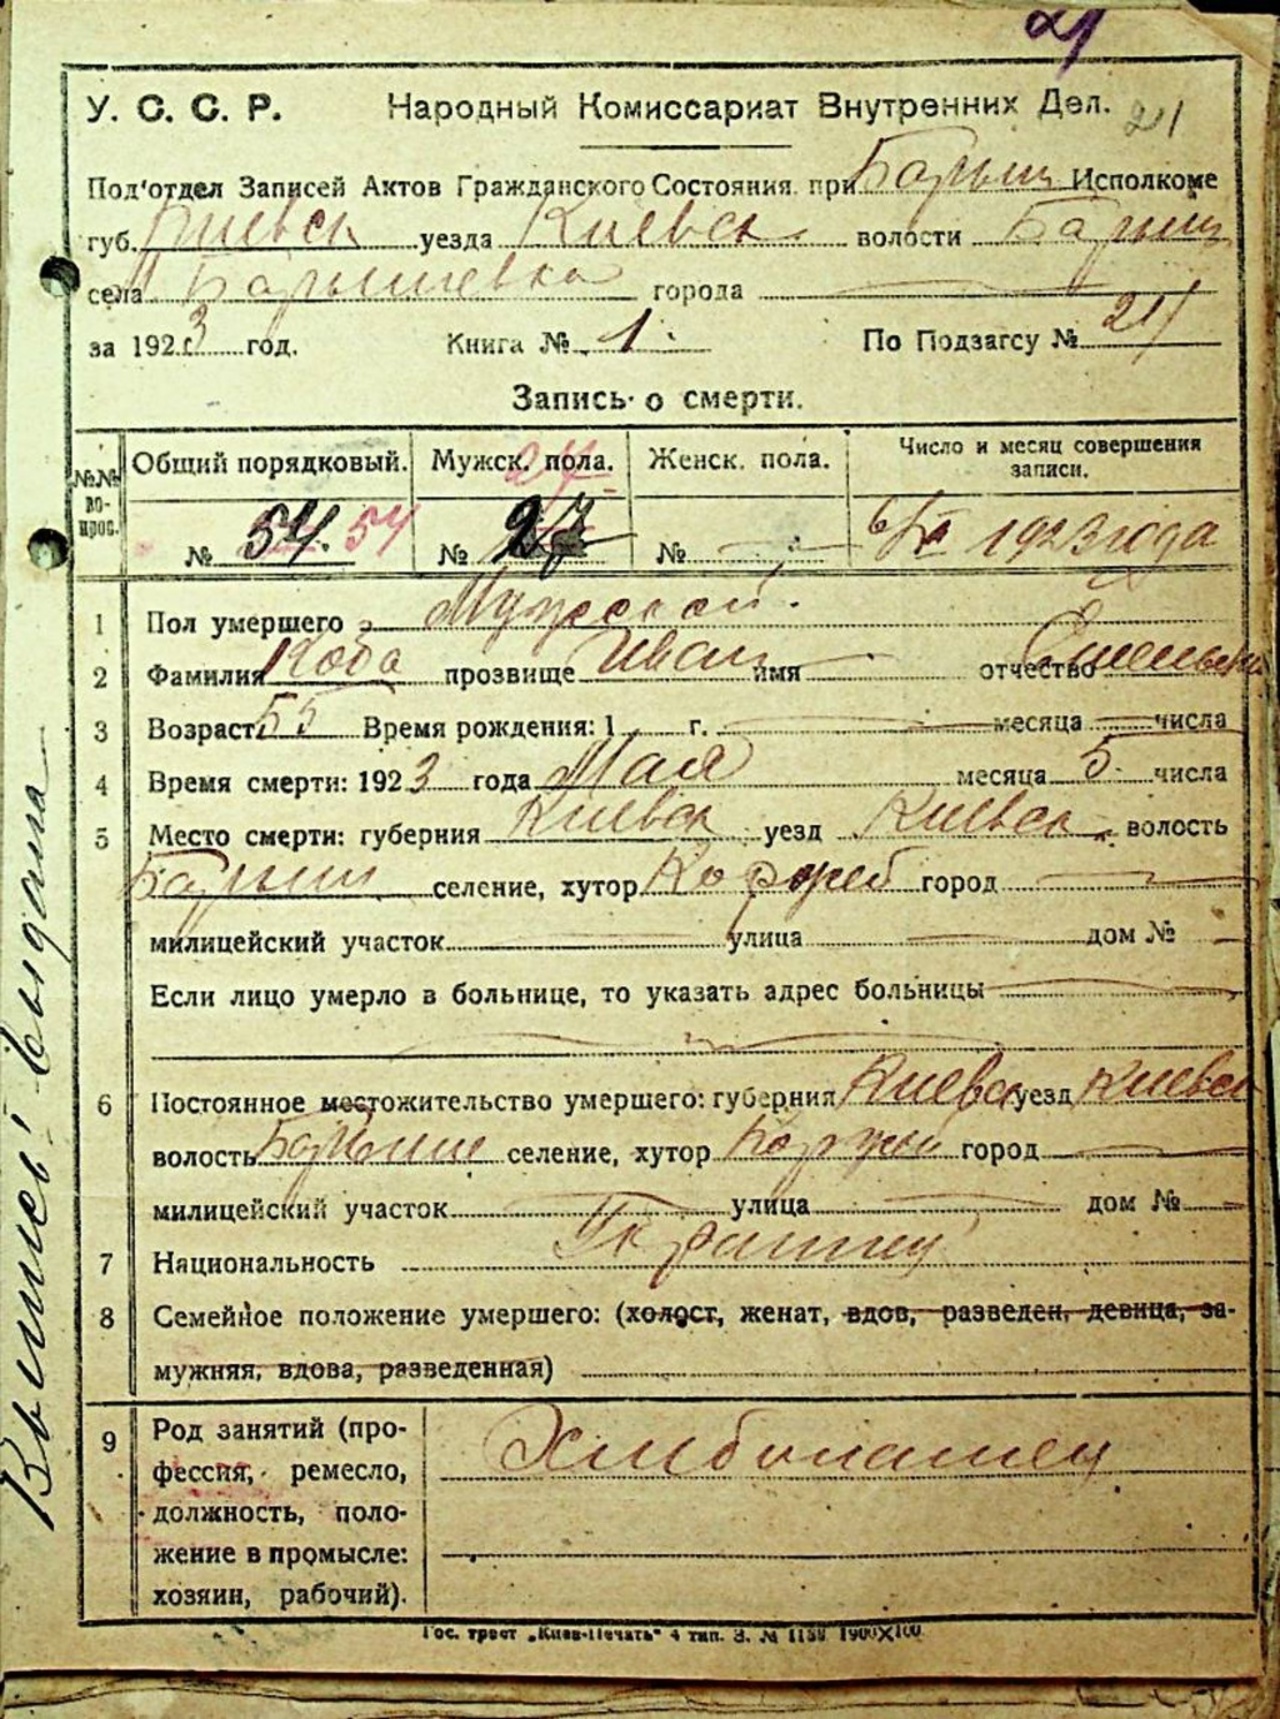 21
У. С. С. Р. Народный Комиссариат Внутренних Дел. 21
Под'отдел Записей Актов Гражданского Состояния при Барыш Исполкоме
губ. Киевск уезда Киевск волости Барыш
села Барышевка города
за 1923 год. Книга № 1. По Подзагсу № 21
Запись о смерти.
№№ вопрос. Общий порядковый. Мужск. пола. Женск. пола. Число и месяц совершения записи.
№ 54. 54 № 27 № 6/V 1923 года
1 Пол умершего Мужской.
2 Фамилия Коба прозвище Иван имя отчество
3 Возраст 55 Время рождения: 1 г. месяца числа
4 Время смерти: 1923 года Мая месяца 5 числа
5 Место смерти: губерния Киевск уезд Киевск. волость
Барыш селение, хутор Коржев город
милицейский участок улица дом №
Если лицо умерло в больнице, то указать адрес больницы
6 Постоянное местожительство умершего: губерния Киевск уезд Киевск
волость Барыш селение, хутор город
милицейский участок улица дом №
7 Национальность Украинец
8 Семейное положение умершего: (холост, женат, вдов, разведен, девица, за-
мужняя, вдова, разведенная)
9 Род занятий (про-
фессия, ремесло,
должность, поло-
жение в промысле:
хозяин, рабочий).
Хлибопашец
Гос. трест „Киев-Печать" 4 тип. З. № 1139 1900×100
Выпись выдана